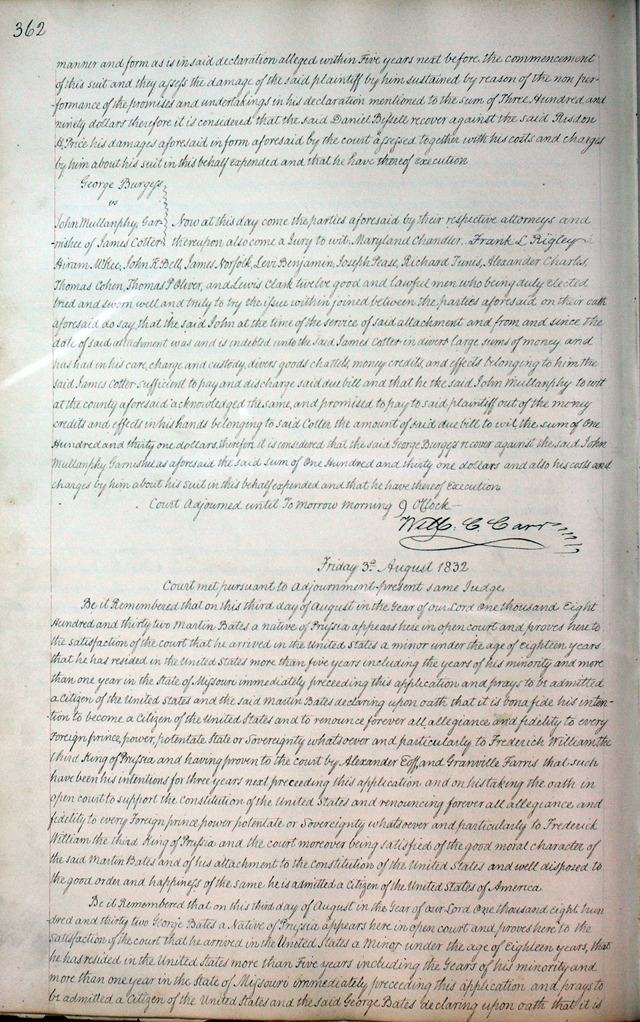 362
manner and form as is in said declaration alleged within Five years next before the commencement
of this suit and they assess the damage of the said plaintiff by him sustained by reason of the non per-
formance of the promises and undertakings in his declaration mentioned to the sum of Three Hundred and
ninety dollars therefore it is considered that the said Daniel Bissell recover against the said Risdon
H Price his damages aforesaid in form aforesaid by the court assessed together with his costs and charges
by him about his suit in this behalf expended and that he have thereof execution
George Burgess
vs
John Mullanphy, Gar- Now at this day come the parties aforesaid by their respective attorneys and
nishee of James Cotter thereupon also come a Jury to wit, Maryland Chandler, Frank L Rigley
Hiram McKee, John R Bell, James Norfolk, Levi Benjamin, Joseph Pease, Richard Tunis, Alexander Charles,
Thomas Cohen, Thomas P Oliver, and Lewis Clark twelve good and lawful men who being duly elected
tried and sworn well and truly to try the issue within joined between the parties aforesaid on their oath
aforesaid do say, that the said John at the time of the service of said attachment and from and since the
date of said attachment was and is indebted unto the said James Cotter in divers large sums of money and
has had in his care, charge and custody, divers goods chattels, money credits, and effects belonging to him the
said James Cotter sufficient to pay and discharge said due bill and that he the said John Muullanphy to wit
at the county aforesaid acknowledged the same, and promised to pay to said plaintiff out of the money
credits and effects in his hands belonging to said Cotter the amount of said due bill to wit the sum of One
Hundred and thirty one dollars, therefore it is considered that the said George Burgess recover against the said John
Mullanphy Garnishee as aforesaid the said sum of One Hundred and thirty one dollars and also his costs and
charges by him about his suit in this behalf expended and that he have thereof Execution
Court Adjourned until To Morrow morning 9 O'Clock
Will. C. Carr
Friday 3d August 1832
Court met pursuant to adjournment present same Judge.
Be it Remembered that on this third day of August in the Year of our Lord One thousand Eight
Hundred and thirty two Martin Bates a native of Prussia appears here in open court and proves here to
the satisfaction of the court that he arrived in the United States a minor under the age of Eighteen years
that he has resided in the United States more than five years including the years of his minority and more
than one year in the State of Missouri immediately preceeding this application and prays to be admitted
a Citizen of the United States and the said Martin Bates declaring upon oath that it is bona fide his inten-
tion to become a Citizen of the United States and to renounce forever all allegiance and fidelity to every
Foreign prince, power, potentate State or Sovereignty whatsoever and particularly to Frederick William the
third King of Prussia and having proven to the court by Alexander Eoff and Granville Farris that such
have been his intentions for three years next preceeding this application and on his taking the oath in
open court to support the Constitution of the United States and renouncing forever all allegiance, and
fidelity to every Foreign prince power potentate or Sovereignty whatsoever and particularly to Frederick
William the third King of Prussia and the court moreover being satisfied of the good moral character of
the said Martin Bates and of his attachment to the Constitution of the United States and well disposed to
the good order and happiness of the same he is admitted a Citizen of the United States of America
Be it Remembered that on this third day of August in the Year of our Lord One thousand eight hun
dred and thirty two George Bates a Native of Prussia appears here in open court and proves here to the
satisfaction of the court that he arrived in the United States a Minor under the age of Eighteen years, that
he has resided in the United States more than Five years including the Years of his minority and
more than one year in the State of Missouri immediately preceeding this application and prays to
be admitted a Citizen of the United States and the said George Bates declaring upon oath that it is